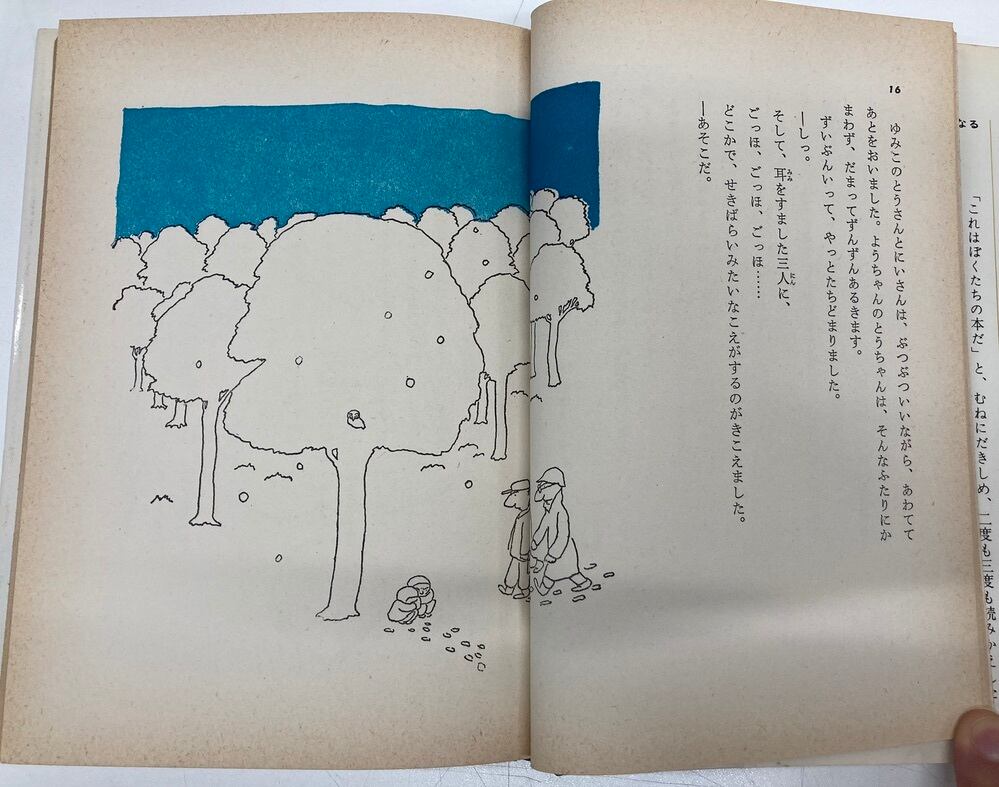 16
ゆみこのとうさんとにいさんは、ぶつぶついいながら、あわてて
あとをおいました。ようちゃんのとうちゃんは、そんなふたりにか
まわず、だまってずんずんあるきます。
ずいぶんいって、やっとたちどまりました。
―しっ。
そして、耳をすました三人に、
ごっほ、ごっほ、ごっほ……
どこかで、せきばらいみたいなこえがするのがきこえました。
―あそこだ。
なる
「これはぼくたちの本だ」と、むねにだきしめ、二度も三度も読みか